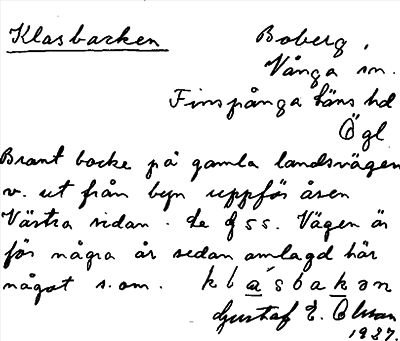 Klasbacken
Boberg,
Vånga sn.
Finspånga läns hd
Ögl
Brant backe på gamla landsvägen
v. ut från byn uppför åsen
Västra sidan. de g s s. Vägen är
för några år sedan omlagd här
något s. om. klásbakən
Gustaf E. Olsson
1937.